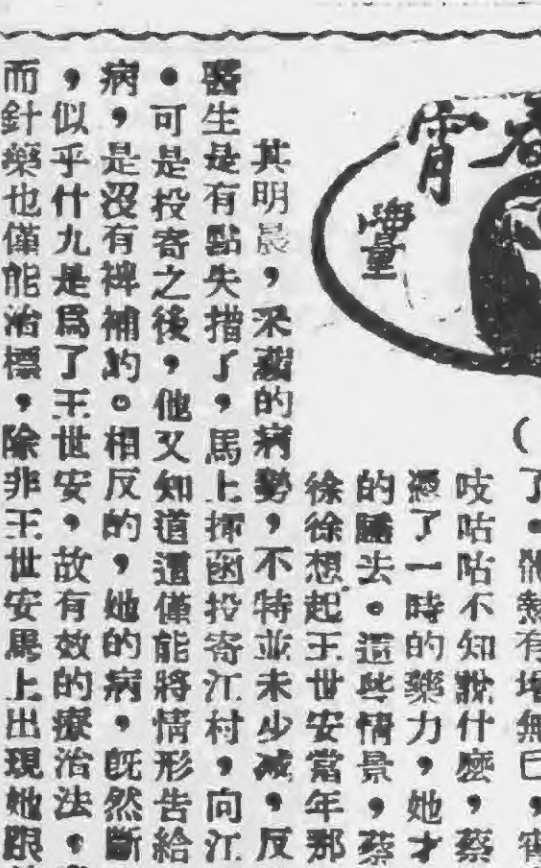 宵
海量
了。體熱有增無已，
吱咕咕不知說什麼，蔡
憑了一時的藥力，她才
的睡去。這些情景，蔡
徐徐想起王世安當年那
其明晨，的病勢，不特並未少減，反
醫生是有點失措了，馬上揮函投寄江村，向江
。可是投寄之後，他又知道這僅能將情形告給
病，是沒有裨補的。相反的，她的病，既然斷
，似乎什九是爲了王世安，故有效的療治法，
而針藥也僅能治標，除非王世安馬上出現她跟